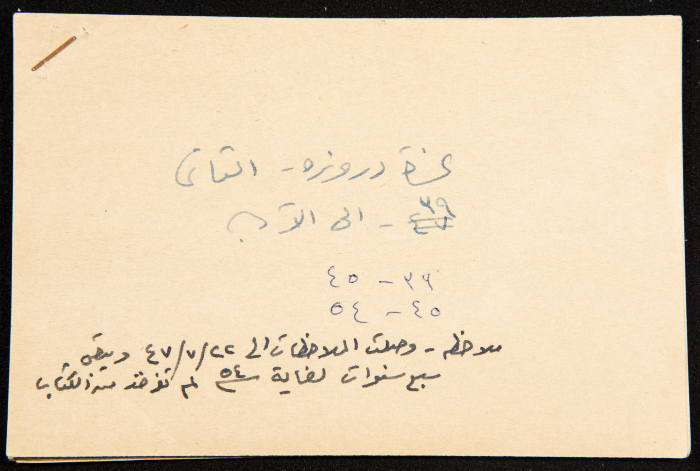 عزة دروزه - الثاني
٣٩ - الى الآن
٣٩ - ٤٥
٤٥ - ٥٤
ملاحظه - وصلت الملاحظات الى ٤٧/٧/٢٢ ويبقى
سبع سنوات لغاية ٥٤ لم تؤخذ من الكتاب